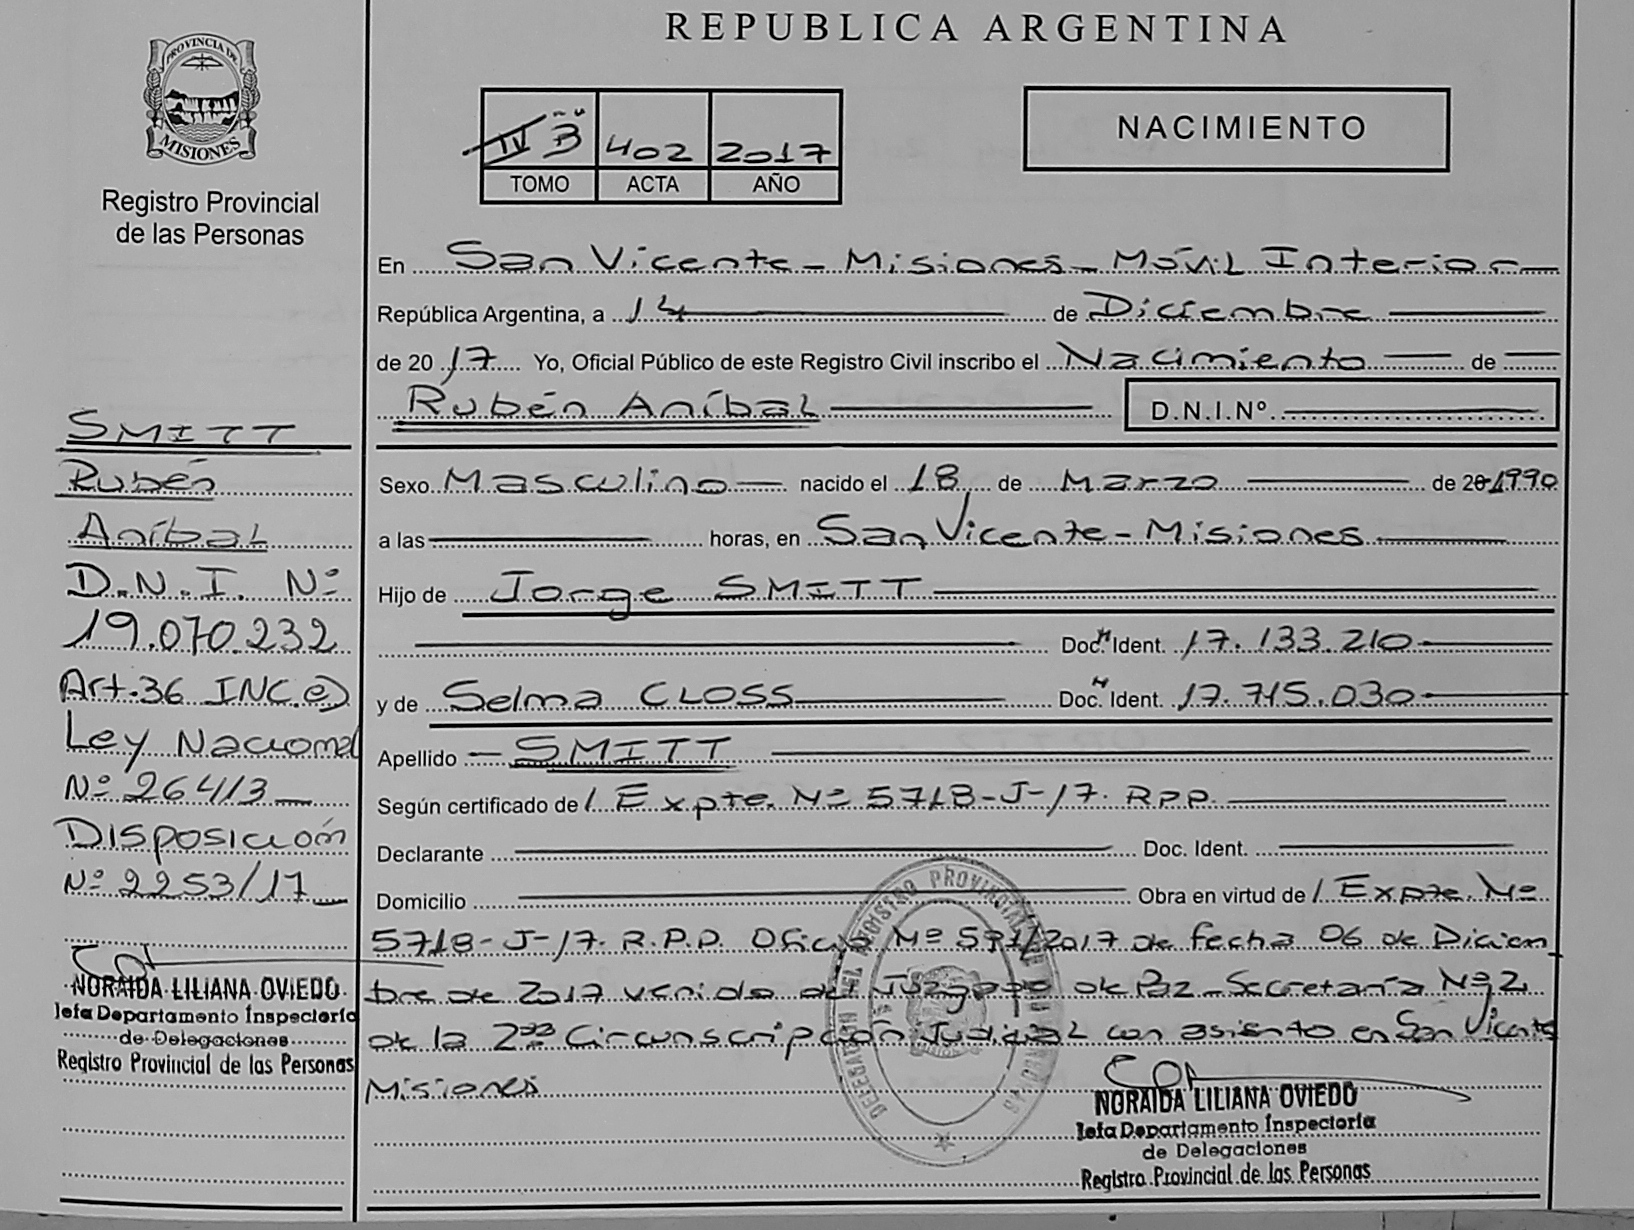 REPUBLICA ARGENTINA
PROVINCIA DE
MISIONES
Registro Provincial
de las Personas
IV B 402 2017
TOMO ACTA AÑO
NACIMIENTO
En San Vicente - Misiones - Móvil Interior
República Argentina, a 14 de Diciembre
de 20 17 Yo, Oficial Público de este Registro Civil inscribo el Nacimiento de
Rubén Aníbal D.N.I. Nº.
Sexo Masculino nacido el 18 de Marzo de 20 1990
a las horas, en San Vicente - Misiones
Hijo de Jorge SMITT
Doc. N Ident. 17.133.210
y de Selma CLOSS Doc. N Ident. 17.715.030
Apellido SMITT
Según certificado de / Expte. Nº 5718-J-17. R.P.P.
Declarante Doc. Ident.
Domicilio Obra en virtud de / Expte. Nº
5718-J-17. R.P.P. Oficio Nº /2017 de fecha 06 de Diciem
bre de 2017 venido del Juzgado de Paz - Secretaría Nº 2
de la 2da Circunscripción Judicial con asiento en San Vicente
Misiones
NORAIDA LILIANA OVIEDO
Jefa Departamento Inspectoría
de Delegaciones
Registro Provincial de las Personas
SMITT
Rubén
Aníbal
D.N.I. Nº
19.070.232
Art.36 INC.e)
Ley Nacional
Nº 26413
Disposición
Nº 2253/17
NORAIDA LILIANA OVIEDO
Jefa Departamento Inspectoría
de Delegaciones
Registro Provincial de las Personas